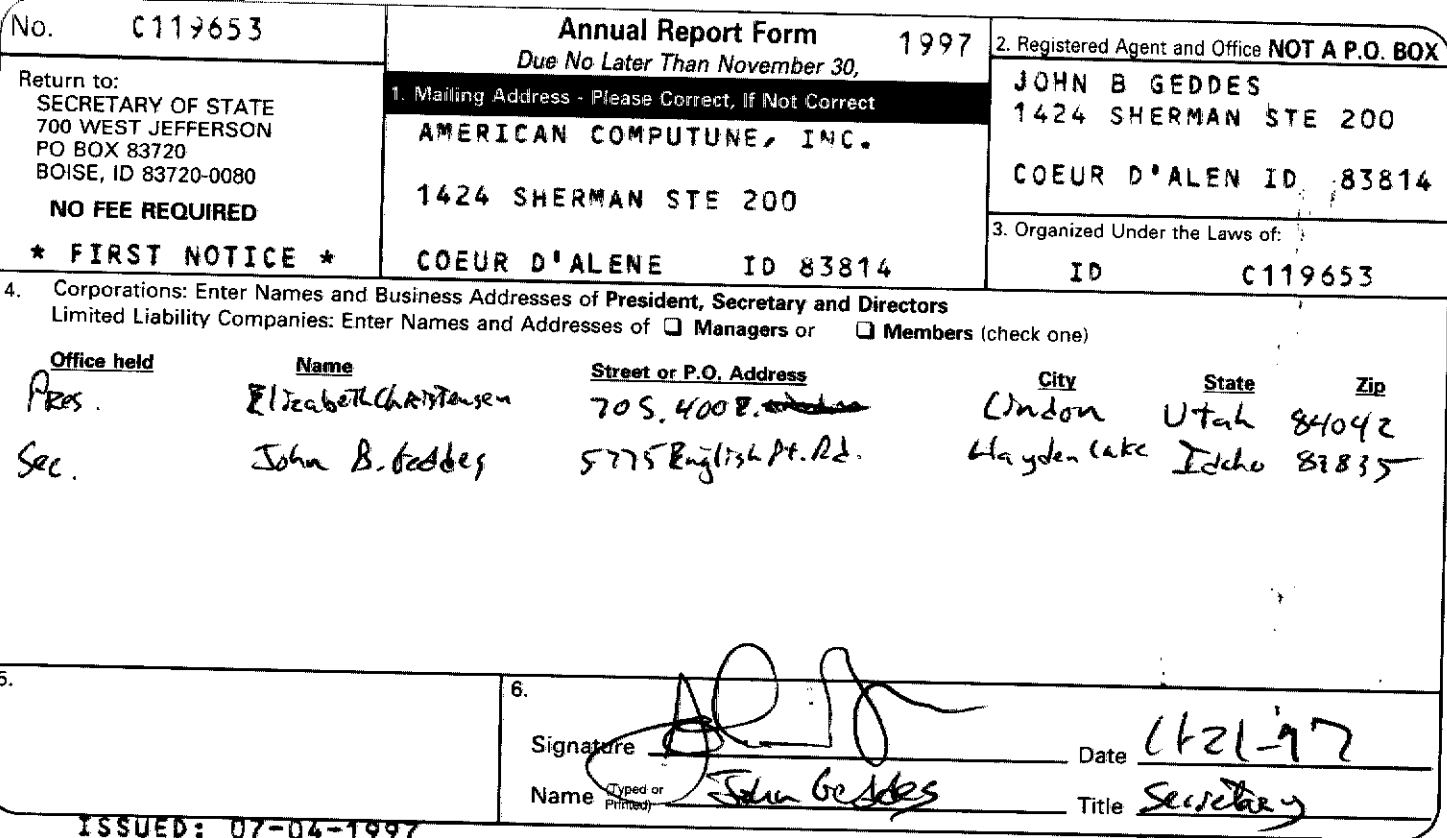 No. C119653
Return to:
SECRETARY OF STATE
700 WEST JEFFERSON
PO BOX 83720
BOISE, ID 83720-0080
NO FEE REQUIRED
* FIRST NOTICE *
Annual Report Form 1997
Due No Later Than November 30,
1. Mailing Address - Please Correct, If Not Correct
AMERICAN COMPUTUNE, INC.
1424 SHERMAN STE 200
COEUR D'ALENE ID 83814
2. Registered Agent and Office NOT A P.O. BOX
JOHN B GEDDES
1424 SHERMAN STE 200
COEUR D'ALEN ID 83814
3. Organized Under the Laws of:
ID C119653
4. Corporations: Enter Names and Business Addresses of President, Secretary and Directors
Limited Liability Companies: Enter Names and Addresses of ❑ Managers or ❑ Members (check one)
Office held Name Street or P.O. Address City State Zip
Pres. Elizabeth Christensen 70 S. 400 E. Lindon Utah 84042
Sec. John B. Geddes 5775 English Pt. Rd. Hayden Lake Idaho 83835
5.
6.
Signature Date 11-21-'97
Name (Typed or Printed) John Geddes Title Secretary
ISSUED: 07-04-1997